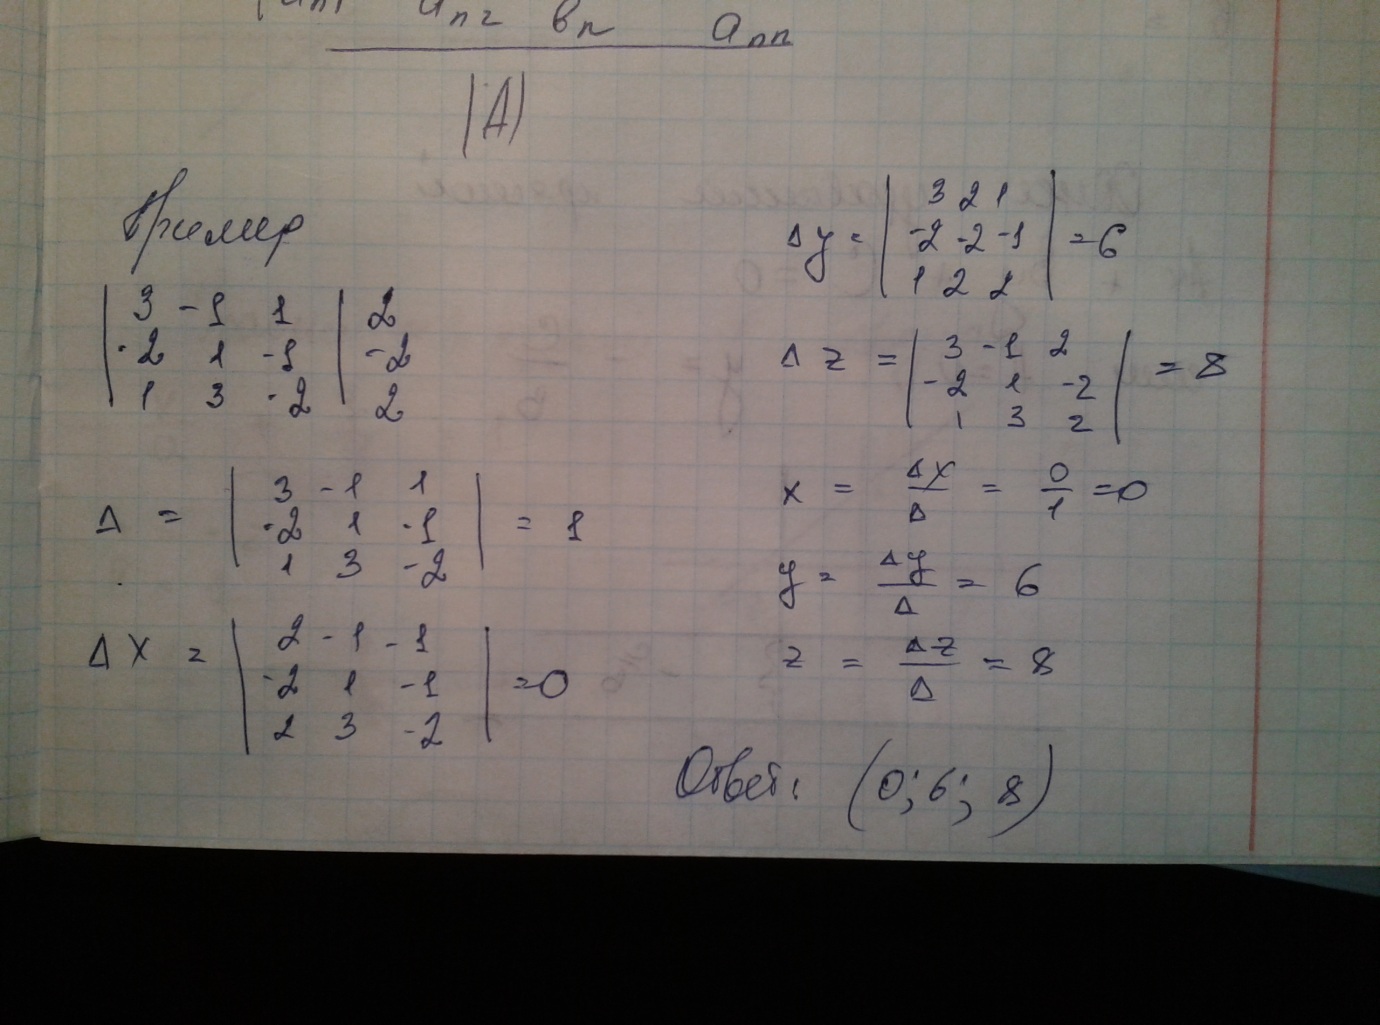 a_n1 a_n2 в_n a_nn
|A|
Пример
| 3 -1 1 | 2
| -2 1 -1 | -2
| 1 3 -2 | 2
Δ = | 3 -1 1 |
| -2 1 -1 | = 1
| 1 3 -2 |
ΔX = | 2 -1 -1 |
| -2 1 -1 | =0
| 2 3 -2 |
Δy = | 3 2 1 |
| -2 -2 -1 | =6
| 1 2 2 |
Δz = | 3 -1 2 | = 8
| -2 1 -2 |
| 1 3 2 |
x = Δx/Δ = 0/1 =0
y = Δy/Δ = 6
z = Δz/Δ = 8
Ответ: (0; 6; 8)